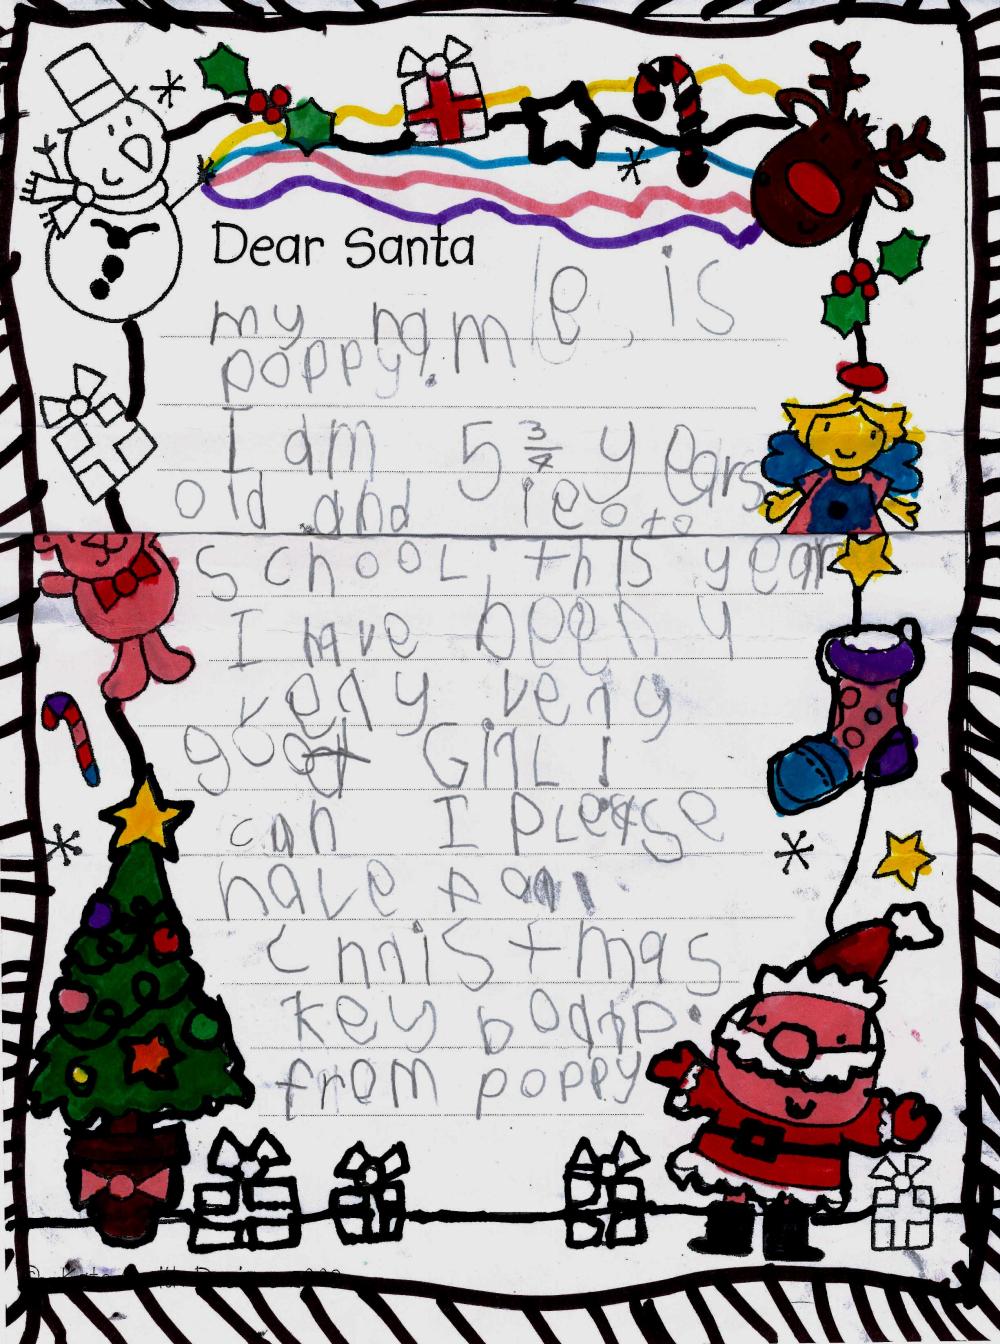 Dear Santa
my name is
poppy.
I am 5 3/4 years
old and i e o to
school. this year
I have been y
very very
good GirL!
can I pLease
have a
christmas
key board.
from poppy